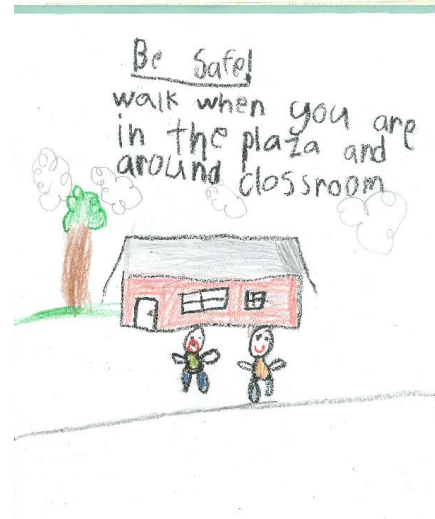 Be Safe!
walk when you are
in the plaza and
around clossroom